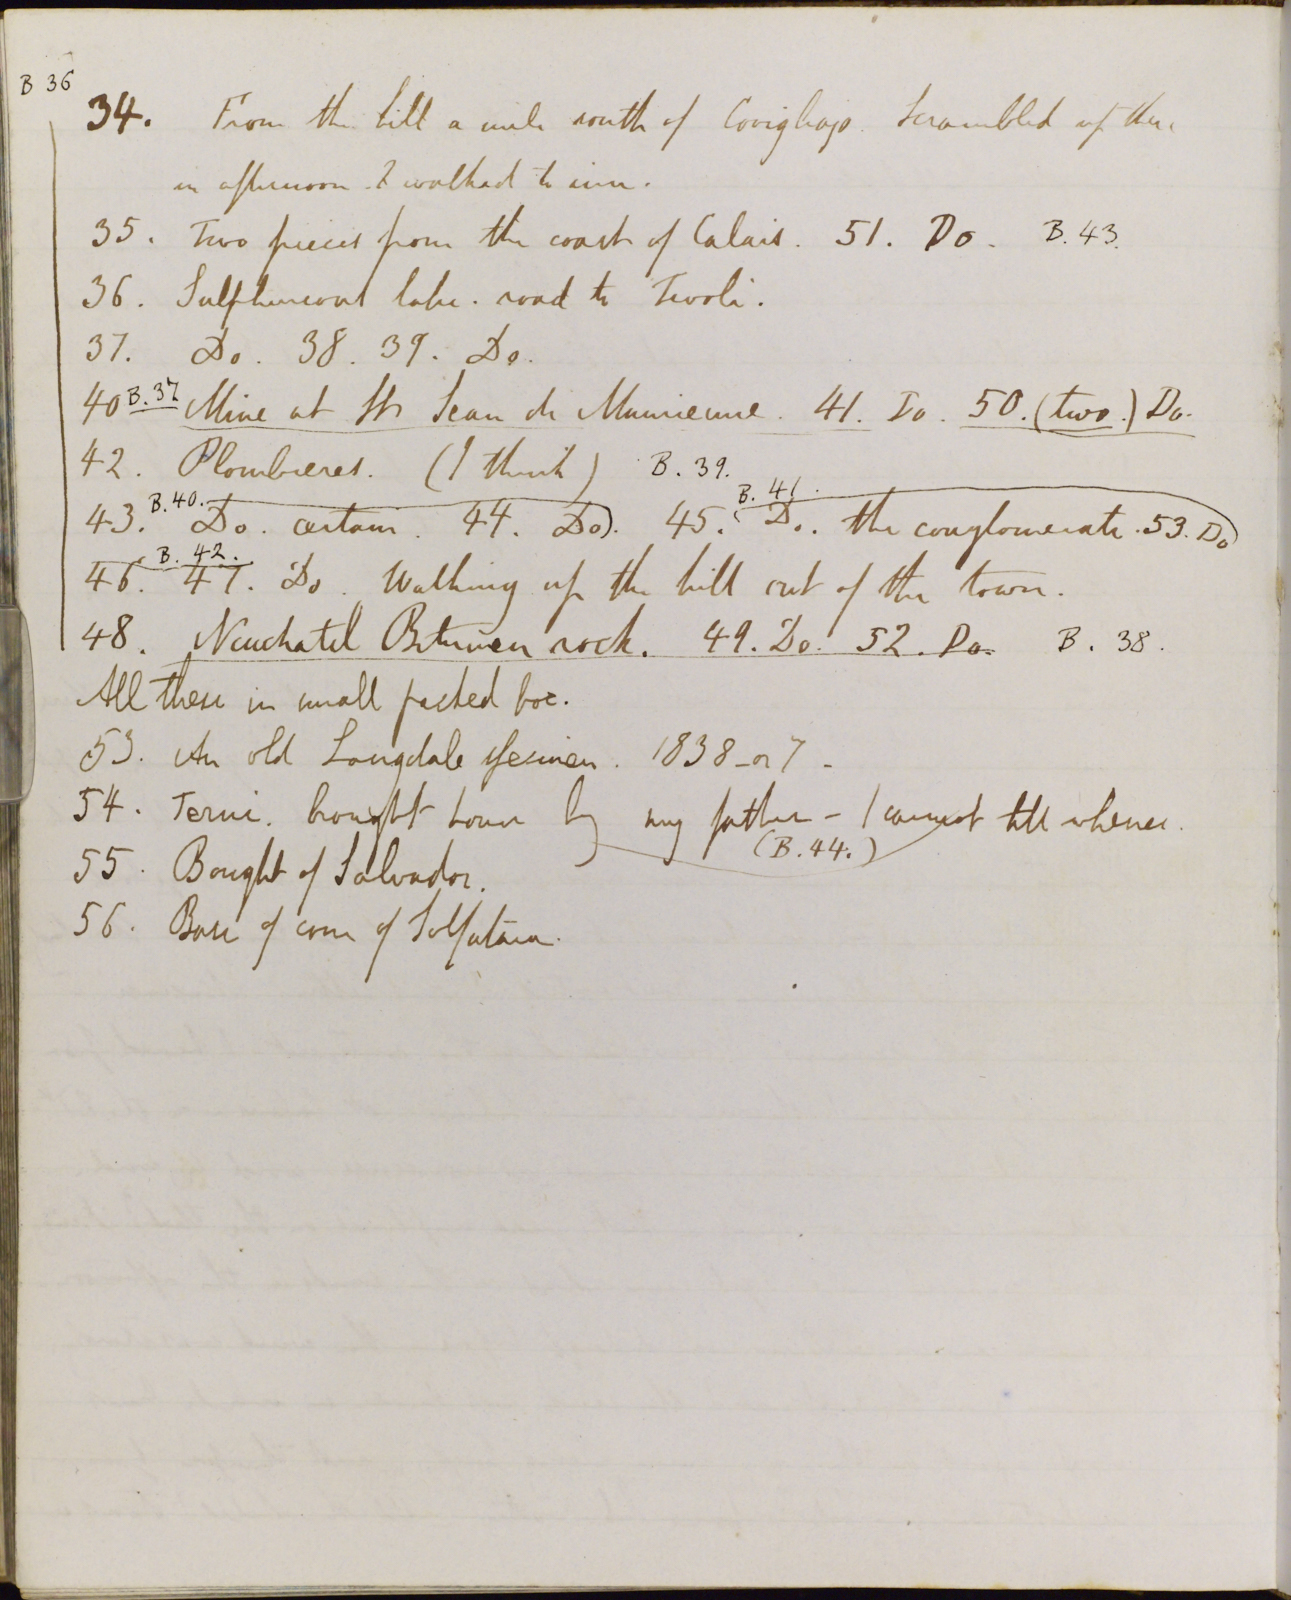 B 36
34. From the hill a mile south of Covigliajo. Scrambled up there
in afternoon I walked to inn.
35. Two pieces from the coast of Calais. 51. Do. B. 43.
36. Sulphureous lake. road to Tivoli.
37. Do. 38. 39. Do.
40 B. 37 Mine at St Jean de Maurienne. 41. Do. 50. (two.) Do.
42. Plombieres. (I think) B. 39.
43. B. 40. Do. certain. 44. Do). 45. B. 41. (Do. the conglomerate. 53. Do)
46. B. 42. 47. Do. Walking up the hill out of the town.
48. Neuchatel Bitumen rock. 49. Do. 52. Do. B. 38.
All these in small packed box.
53. An old Langdale specimen. 1838 - or 7 -
54. Terni. brought home by my father - I cannot tell whence.
(B. 44.)
55. Bought of Salvador.
56. Base of cone of Solfatara.